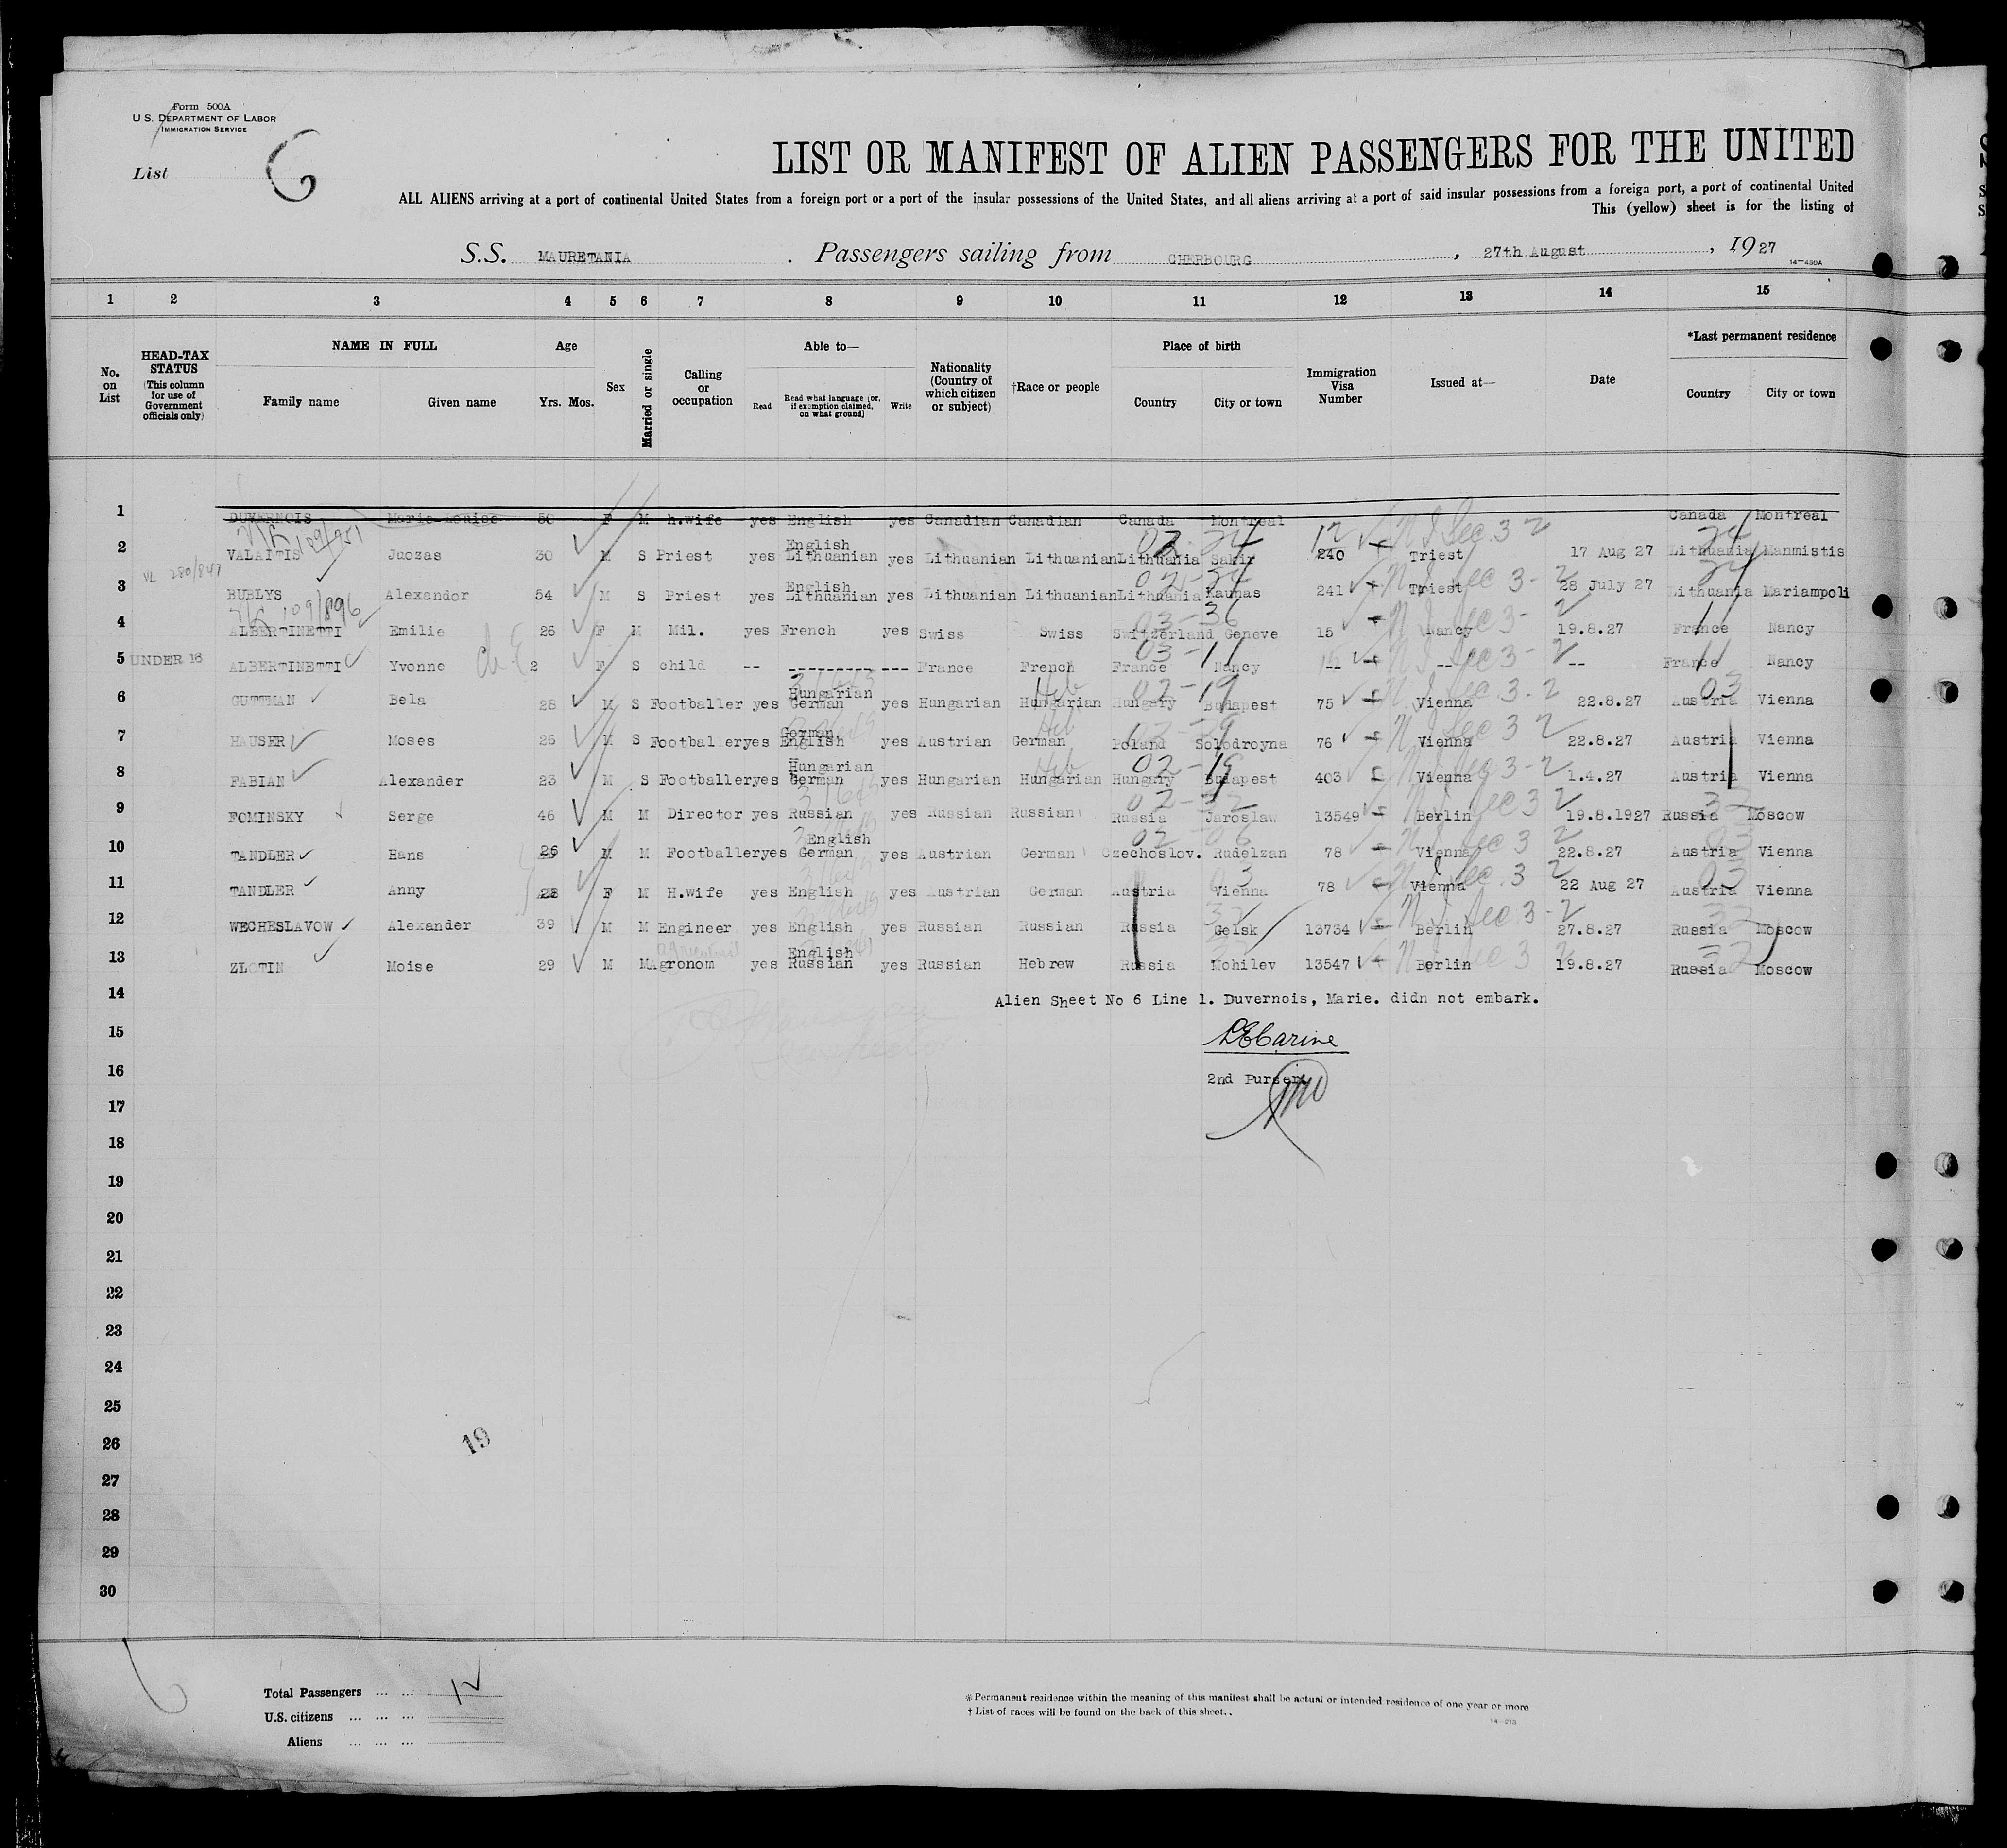 Form 500A
U.S. DEPARTMENT OF LABOR
IMMIGRATION SERVICE
List 6
LIST OR MANIFEST OF ALIEN PASSENGERS FOR THE UNITED
ALL ALIENS arriving at a port of continental United States from a foreign port or a port of the insular possessions of the United States, and all aliens arriving at a port of said insular possessions from a foreign port, a port of continental United
This (yellow) sheet is for the listing of
S.S. MAURETANIA . Passengers sailing from CHERBOURG , 27th August , 1927
14-430A
1 2 3 4 5 6 7 8 9 10 11 12 13 14 15
No. on List
HEAD-TAX STATUS (This column for use of Government officials only)
NAME IN FULL Family name Given name
Age Yrs. Mos.
Sex
Married or single
Calling or occupation
Able to— Read Read what language [or, if exemption claimed, on what ground] Write
Nationality (Country of which citizen or subject)
†Race or people
Place of birth Country City or town
Immigration Visa Number
Issued at—
Date
*Last permanent residence Country City or town
1 DUVERNOIS Marie Louise 50 F M h.wife yes English yes Canadian Canadian Canada Montreal Canada Montreal
2 VALAITIS Juozas 30 M S Priest yes English Lithuanian yes Lithuanian Lithuanian Lithuania Sakir 240 Triest 17 Aug 27 Lithuania Manmistis
3 BUBLYS Alexandor 54 M S Priest yes English Lithuanian yes Lithuanian Lithuanian Lithuania Kaunas 241 Triest 28 July 27 Lithuania Mariampoli
4 ALBERTINETTI Emilie 26 F M Mil. yes French yes Swiss Swiss Switzerland Geneve 15 Nancy 19.8.27 France Nancy
5 UNDER 16 ALBERTINETTI Yvonne 2 F S child -- --------- --- France French France Nancy -- -- -- France Nancy
6 GUTTMAN Bela 28 M S Footballer yes Hungarian German yes Hungarian Hungarian Hungary Budapest 75 Vienna 22.8.27 Austria Vienna
7 HAUSER Moses 26 M S Footballer yes German English yes Austrian German Poland Solodroyna 76 Vienna 22.8.27 Austria Vienna
8 FABIAN Alexander 23 M S Footballer yes Hungarian German yes Hungarian Hungarian Hungary Budapest 403 Vienna 1.4.27 Austria Vienna
9 FOMINSKY Serge 46 M M Director yes Russian yes Russian Russian Russia Jaroslaw 13549 Berlin 19.8.1927 Russia Moscow
10 TANDLER Hans 26 M M Footballer yes English German yes Austrian German Czechoslov. Rudelzan 78 Vienna 22.8.27 Austria Vienna
11 TANDLER Anny 28 F M H.wife yes English yes Austrian German Austria Vienna 78 Vienna 22 Aug 27 Austria Vienna
12 WECHESLAVOW Alexander 39 M M Engineer yes English yes Russian Russian Russia Gelsk 13734 Berlin 27.8.27 Russia Moscow
13 ZLOTIN Moise 29 M M Agronom yes English Russian yes Russian Hebrew Russia Mohilev 13547 Berlin 19.8.27 Russia Moscow
14 Alien Sheet No 6 Line 1. Duvernois, Marie. didn not embark.
15
16 2nd Purser
17
18
19
20
21
22
23
24
25
26
19
27
28
29
30
Total Passengers ... ... 12
U.S. citizens ... ... ...
Aliens ... ... ...
*Permanent residence within the meaning of this manifest shall be actual or intended residence of one year or more
† List of races will be found on the back of this sheet.